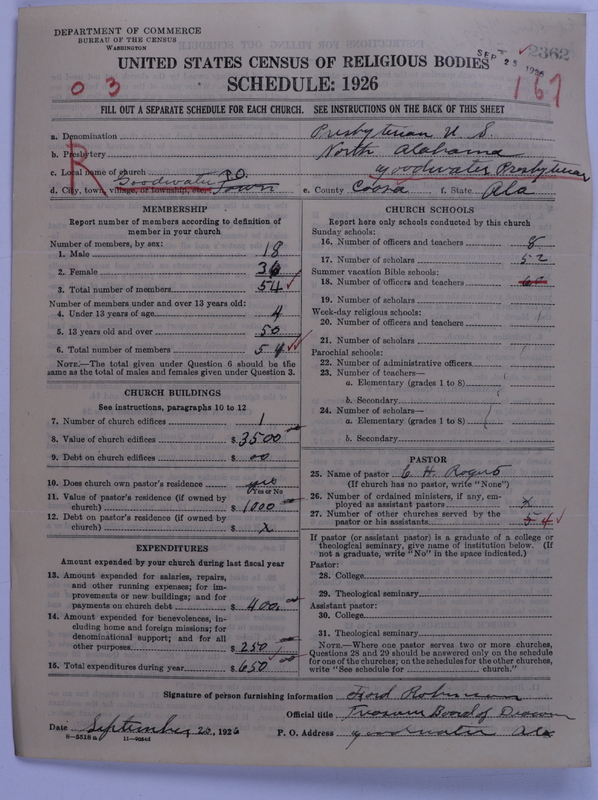 DEPARTMENT OF COMMERCE
BUREAU OF THE CENSUS
WASHINGTON
SEP 25 1926
2362
UNITED STATES CENSUS OF RELIGIOUS BODIES
SCHEDULE: 1926
0 3
167
FILL OUT A SEPARATE SCHEDULE FOR EACH CHURCH. SEE INSTRUCTIONS ON THE BACK OF THIS SHEET
R
a. Denomination Presbyterian U. S.
b. Presbytery North Alabama
c. Local name of church Goodwater Presbyterian
d. City, town, village, or township, etc. Goodwater P.O. Town e. County Coosa f. State Ala
MEMBERSHIP
Report number of members according to definition of member in your church
Number of members, by sex:
1. Male 18
2. Female 36
3. Total number of members 54
Number of members under and over 13 years old:
4. Under 13 years of age 4
5. 13 years old and over 50
6. Total number of members 54
NOTE.—The total given under Question 6 should be the same as the total of males and females given under Question 3.
CHURCH BUILDINGS
See instructions, paragraphs 10 to 12
7. Number of church edifices 1
8. Value of church edifices $ 3500
9. Debt on church edifices $ 00
10. Does church own pastor's residence yes
(Yes or No
11. Value of pastor's residence (if owned by church) $ 1000
12. Debt on pastor's residence (if owned by church) $ x
EXPENDITURES
Amount expended by your church during last fiscal year
13. Amount expended for salaries, repairs, and other running expenses; for improvements or new buildings; and for payments on church debt $ 400
14. Amount expended for benevolences, including home and foreign missions; for denominational support; and for all other purposes $ 250
15. Total expenditures during year $ 650
CHURCH SCHOOLS
Report here only schools conducted by this church
Sunday schools:
16. Number of officers and teachers 8
17. Number of scholars 52
Summer vacation Bible schools:
18. Number of officers and teachers
19. Number of scholars
Week-day religious schools:
20. Number of officers and teachers
21. Number of scholars
Parochial schools:
22. Number of administrative officers
23. Number of teachers—
a. Elementary (grades 1 to 8)
b. Secondary
24. Number of scholars—
a. Elementary (grades 1 to 8)
b. Secondary
PASTOR
25. Name of pastor C. H. Rogers
(If church has no pastor, write "None")
26. Number of ordained ministers, if any, employed as assistant pastors x
27. Number of other churches served by the pastor or his assistants 4
If pastor (or assistant pastor) is a graduate of a college or theological seminary, give name of institution below. (If not a graduate, write "No" in the space indicated.)
Pastor:
28. College
29. Theological seminary
Assistant pastor:
30. College
31. Theological seminary
NOTE.—Where one pastor serves two or more churches, Questions 28 and 29 should be answered only on the schedule for one of the churches; on the schedules for the other churches, write "See schedule for church."
Signature of person furnishing information Ford Robinson
Official title Treasurer Board of Deacons
Date September 20, 1926 P. O. Address Goodwater Ala
8—5518 a 11—9054d